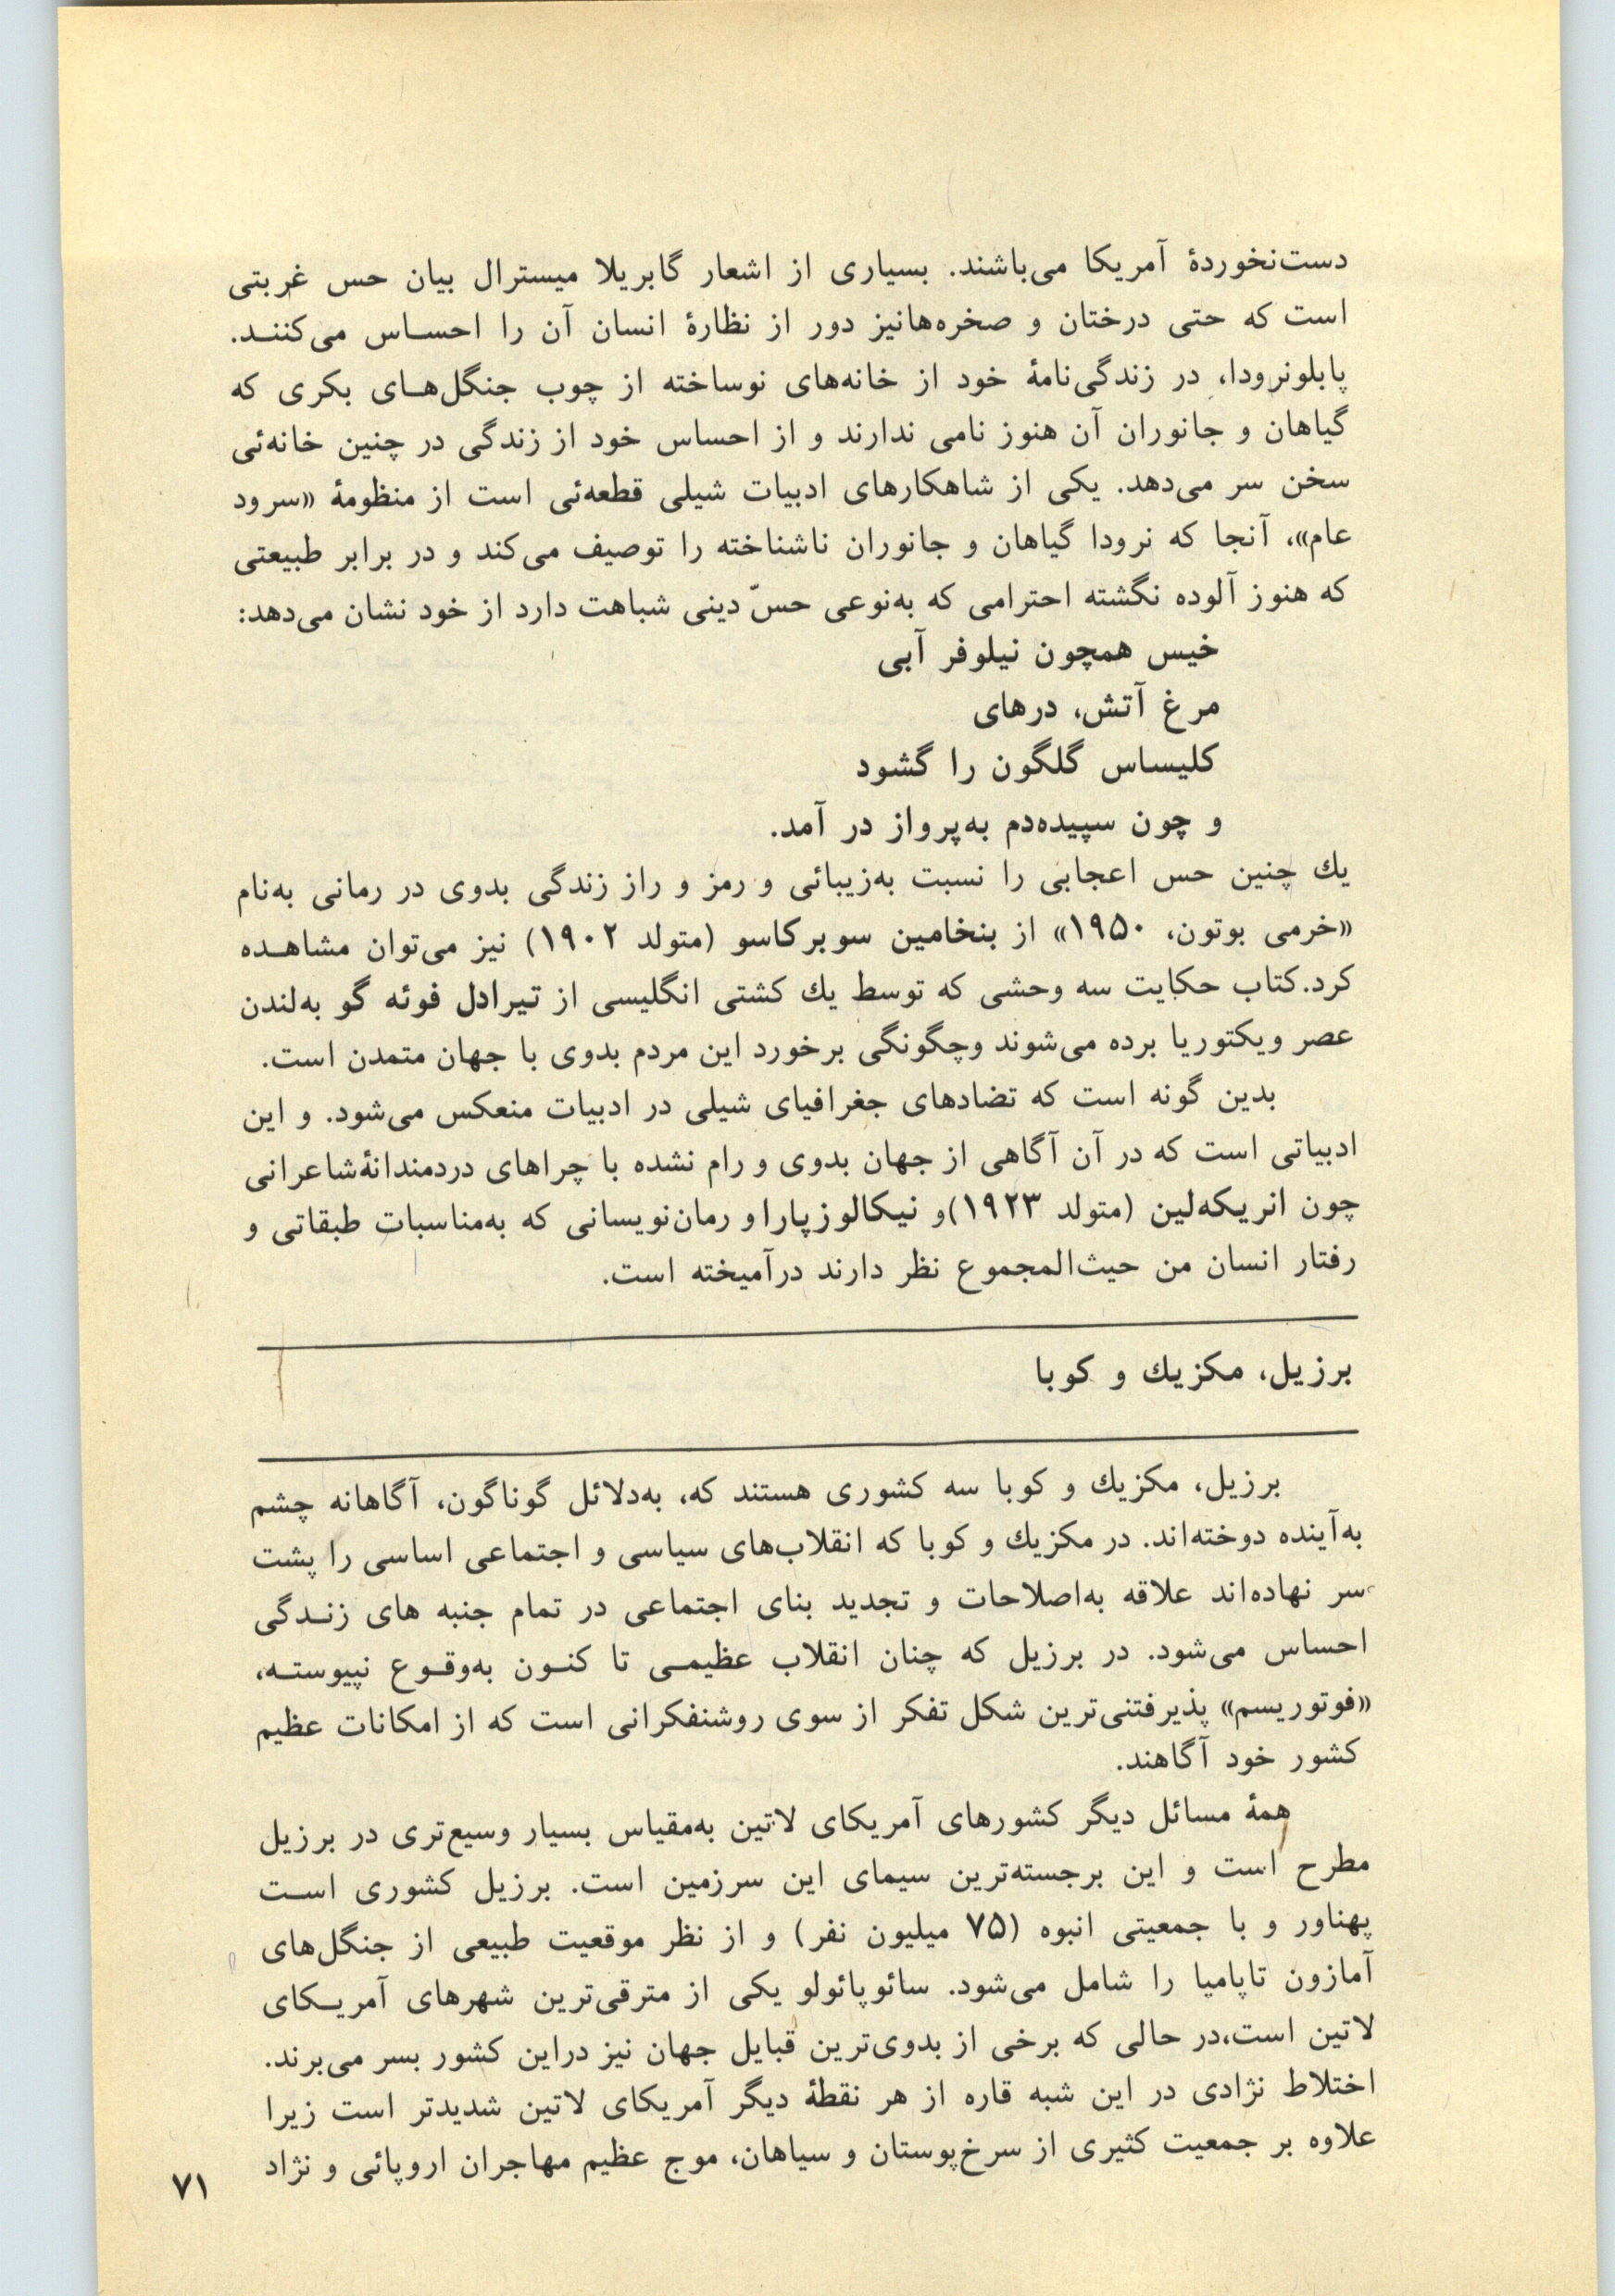 دست‌نخوردهٔ آمریکا می‌باشند. بسیاری از اشعار گابریلا میسترال بیان حس غربتی
است که حتی درختان و صخره‌هانیز دور از نظارهٔ انسان آن را احساس می‌کنند.
پابلونرودا، در زندگی‌نامهٔ خود از خانه‌های نوساخته از چوب جنگل‌های بکری که
گیاهان و جانوران آن هنوز نامی ندارند و از احساس خود از زندگی در چنین خانه‌ئی
سخن سر می‌دهد. یکی از شاهکارهای ادبیات شیلی قطعه‌ئی است از منظومهٔ «سرود
عام»، آنجا که نرودا گیاهان و جانوران ناشناخته را توصیف می‌کند و در برابر طبیعتی
که هنوز آلوده نگشته احترامی که به‌نوعی حسّ دینی شباهت دارد از خود نشان می‌دهد:
خیس همچون نیلوفر آبی
مرغ آتش، درهای
کلیساس گلگون را گشود
و چون سپیده‌دم به‌پرواز در آمد.
یك چنین حس اعجابی را نسبت به‌زیبائی و رمز و راز زندگی بدوی در رمانی به‌نام
«خرمی بوتون، ۱۹۵۰» از بنخامین سوبرکاسو (متولد ۱۹۰۲) نیز می‌توان مشاهده
کرد.کتاب حکایت سه وحشی که توسط یك کشتی انگلیسی از تیرادل فوئه گو به‌لندن
عصر ویکتوریا برده می‌شوند وچگونگی برخورد این مردم بدوی با جهان متمدن است.
بدین گونه است که تضادهای جغرافیای شیلی در ادبیات منعکس می‌شود. و این
ادبیاتی است که در آن آگاهی از جهان بدوی و رام نشده با چراهای دردمندانهٔ‌شاعرانی
چون انریکه‌لین (متولد ۱۹۲۳)و نیکالوزپارا و رمان‌نویسانی که به‌مناسبات طبقاتی و
رفتار انسان من حیث‌المجموع نظر دارند درآمیخته است.
برزیل، مکزیك و کوبا
برزیل، مکزیك و کوبا سه کشوری هستند که، به‌دلائل گوناگون، آگاهانه چشم
به‌آینده دوخته‌اند. در مکزیك و کوبا که انقلاب‌های سیاسی و اجتماعی اساسی را پشت
سر نهاده‌اند علاقه به‌اصلاحات و تجدید بنای اجتماعی در تمام جنبه های زندگی
احساس می‌شود. در برزیل که چنان انقلاب عظیمی تا کنون به‌وقوع نپیوسته،
«فوتوریسم» پذیرفتنی‌ترین شکل تفکر از سوی روشنفکرانی است که از امکانات عظیم
کشور خود آگاهند.
همهٔ مسائل دیگر کشورهای آمریکای لاتین به‌مقیاس بسیار وسیع‌تری در برزیل
مطرح است و این برجسته‌ترین سیمای این سرزمین است. برزیل کشوری است
پهناور و با جمعیتی انبوه (۷۵ میلیون نفر) و از نظر موقعیت طبیعی از جنگل‌های
آمازون تاپامیا را شامل می‌شود. سائوپائولو یکی از مترقی‌ترین شهرهای آمریکای
لاتین است،در حالی که برخی از بدوی‌ترین قبایل جهان نیز دراین کشور بسر می‌برند.
اختلاط نژادی در این شبه قاره از هر نقطهٔ دیگر آمریکای لاتین شدیدتر است زیرا
علاوه بر جمعیت کثیری از سرخ‌پوستان و سیاهان، موج عظیم مهاجران اروپائی و نژاد
۷۱